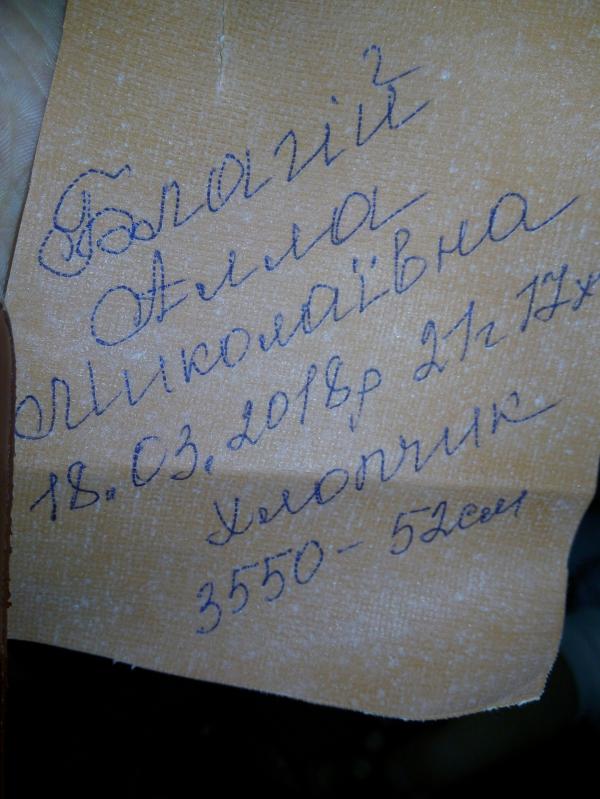 Благій
Алла
Миколаївна
18.03.2018р 21г 17х
хлопчик
3550 – 52см